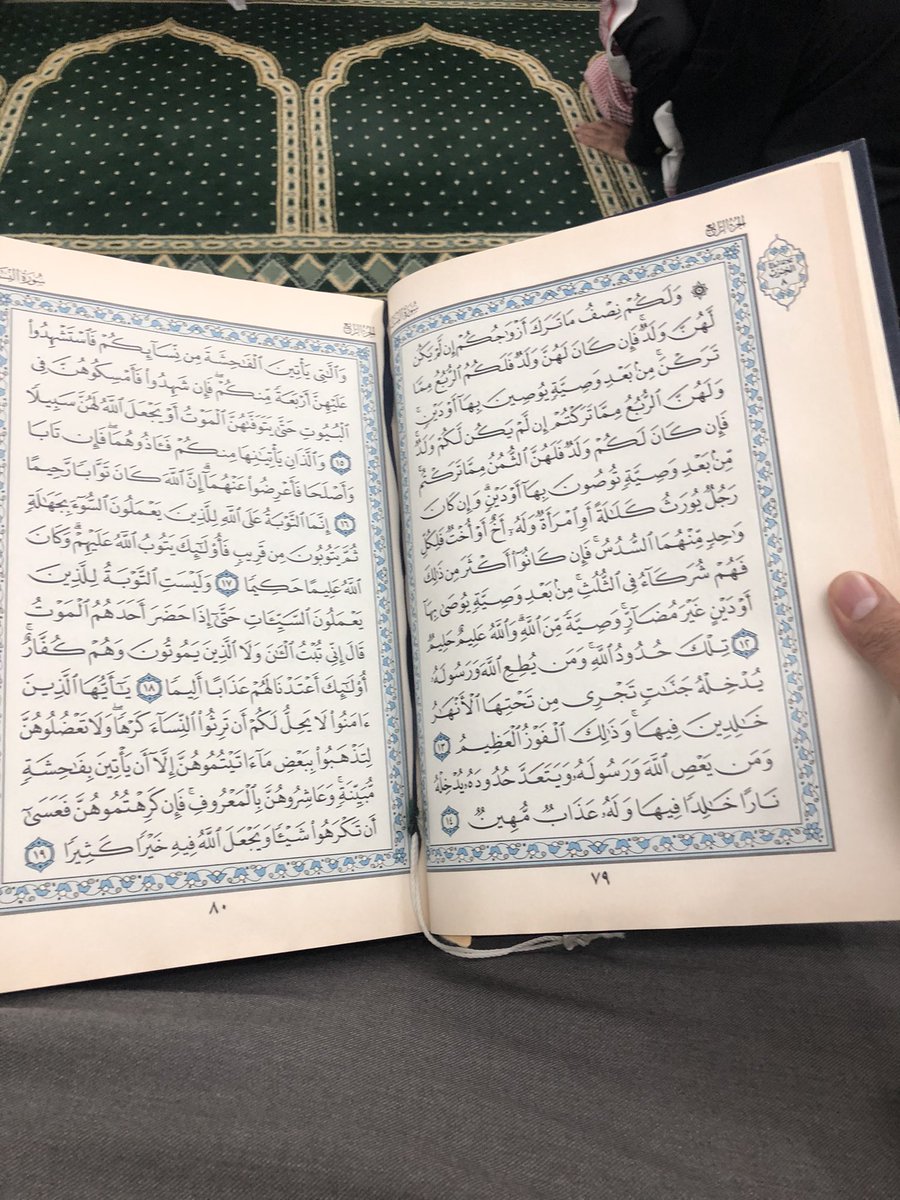 الجزء الرابع
سورة النساء
۞ وَلَكُمْ نِصْفُ مَا تَرَكَ أَزْوَٰجُكُمْ إِن لَّمْ يَكُن
لَّهُنَّ وَلَدٌ فَإِن كَانَ لَهُنَّ وَلَدٌ فَلَكُمُ ٱلرُّبُعُ مِمَّا
تَرَكْنَ مِنۢ بَعْدِ وَصِيَّةٍ يُوصِينَ بِهَآ أَوْ دَيْنٍ
وَلَهُنَّ ٱلرُّبُعُ مِمَّا تَرَكْتُمْ إِن لَّمْ يَكُن لَّكُمْ وَلَدٌ
فَإِن كَانَ لَكُمْ وَلَدٌ فَلَهُنَّ ٱلثُّمُنُ مِمَّا تَرَكْتُم
مِّنۢ بَعْدِ وَصِيَّةٍ تُوصُونَ بِهَآ أَوْ دَيْنٍ وَإِن كَانَ
رَجُلٌ يُورَثُ كَلَٰلَةً أَوِ ٱمْرَأَةٌ وَلَهُۥٓ أَخٌ أَوْ أُخْتٌ فَلِكُلِّ
وَٰحِدٍ مِّنْهُمَا ٱلسُّدُسُ فَإِن كَانُوٓا۟ أَكْثَرَ مِن ذَٰلِكَ
فَهُمْ شُرَكَآءُ فِى ٱلثُّلُثِ مِنۢ بَعْدِ وَصِيَّةٍ يُوصَىٰ بِهَآ
أَوْ دَيْنٍ غَيْرَ مُضَآرٍّ وَصِيَّةً مِّنَ ٱللَّهِ وَٱللَّهُ عَلِيمٌ حَلِيمٌ
١٢ تِلْكَ حُدُودُ ٱللَّهِ وَمَن يُطِعِ ٱللَّهَ وَرَسُولَهُۥ
يُدْخِلْهُ جَنَّٰتٍ تَجْرِى مِن تَحْتِهَا ٱلْأَنْهَٰرُ
خَٰلِدِينَ فِيهَا وَذَٰلِكَ ٱلْفَوْزُ ٱلْعَظِيمُ ١٣
وَمَن يَعْصِ ٱللَّهَ وَرَسُولَهُۥ وَيَتَعَدَّ حُدُودَهُۥ يُدْخِلْهُ
نَارًا خَٰلِدًا فِيهَا وَلَهُۥ عَذَابٌ مُّهِينٌ ١٤
٧٩
الجزء الرابع
سورة النسا
وَٱلَّٰتِى يَأْتِينَ ٱلْفَٰحِشَةَ مِن نِّسَآئِكُمْ فَٱسْتَشْهِدُوا۟
عَلَيْهِنَّ أَرْبَعَةً مِّنكُمْ فَإِن شَهِدُوا۟ فَأَمْسِكُوهُنَّ فِى
ٱلْبُيُوتِ حَتَّىٰ يَتَوَفَّىٰهُنَّ ٱلْمَوْتُ أَوْ يَجْعَلَ ٱللَّهُ لَهُنَّ سَبِيلًا
١٥ وَٱلَّذَانِ يَأْتِيَٰنِهَا مِنكُمْ فَـَٔاذُوهُمَا فَإِن تَابَا
وَأَصْلَحَا فَأَعْرِضُوا۟ عَنْهُمَآ إِنَّ ٱللَّهَ كَانَ تَوَّابًا رَّحِيمًا
١٦ إِنَّمَا ٱلتَّوْبَةُ عَلَى ٱللَّهِ لِلَّذِينَ يَعْمَلُونَ ٱلسُّوٓءَ بِجَهَٰلَةٍ
ثُمَّ يَتُوبُونَ مِن قَرِيبٍ فَأُو۟لَٰٓئِكَ يَتُوبُ ٱللَّهُ عَلَيْهِمْ وَكَانَ
ٱللَّهُ عَلِيمًا حَكِيمًا ١٧ وَلَيْسَتِ ٱلتَّوْبَةُ لِلَّذِينَ
يَعْمَلُونَ ٱلسَّيِّـَٔاتِ حَتَّىٰٓ إِذَا حَضَرَ أَحَدَهُمُ ٱلْمَوْتُ
قَالَ إِنِّى تُبْتُ ٱلْـَٰٔنَ وَلَا ٱلَّذِينَ يَمُوتُونَ وَهُمْ كُفَّارٌ
أُو۟لَٰٓئِكَ أَعْتَدْنَا لَهُمْ عَذَابًا أَلِيمًا ١٨ يَٰٓأَيُّهَا ٱلَّذِينَ
ءَامَنُوا۟ لَا يَحِلُّ لَكُمْ أَن تَرِثُوا۟ ٱلنِّسَآءَ كَرْهًا وَلَا تَعْضُلُوهُنَّ
لِتَذْهَبُوا۟ بِبَعْضِ مَآ ءَاتَيْتُمُوهُنَّ إِلَّآ أَن يَأْتِينَ بِفَٰحِشَةٍ
مُّبَيِّنَةٍ وَعَاشِرُوهُنَّ بِٱلْمَعْرُوفِ فَإِن كَرِهْتُمُوهُنَّ فَعَسَىٰٓ
أَن تَكْرَهُوا۟ شَيْـًٔا وَيَجْعَلَ ٱللَّهُ فِيهِ خَيْرًا كَثِيرًا ١٩
٨٠